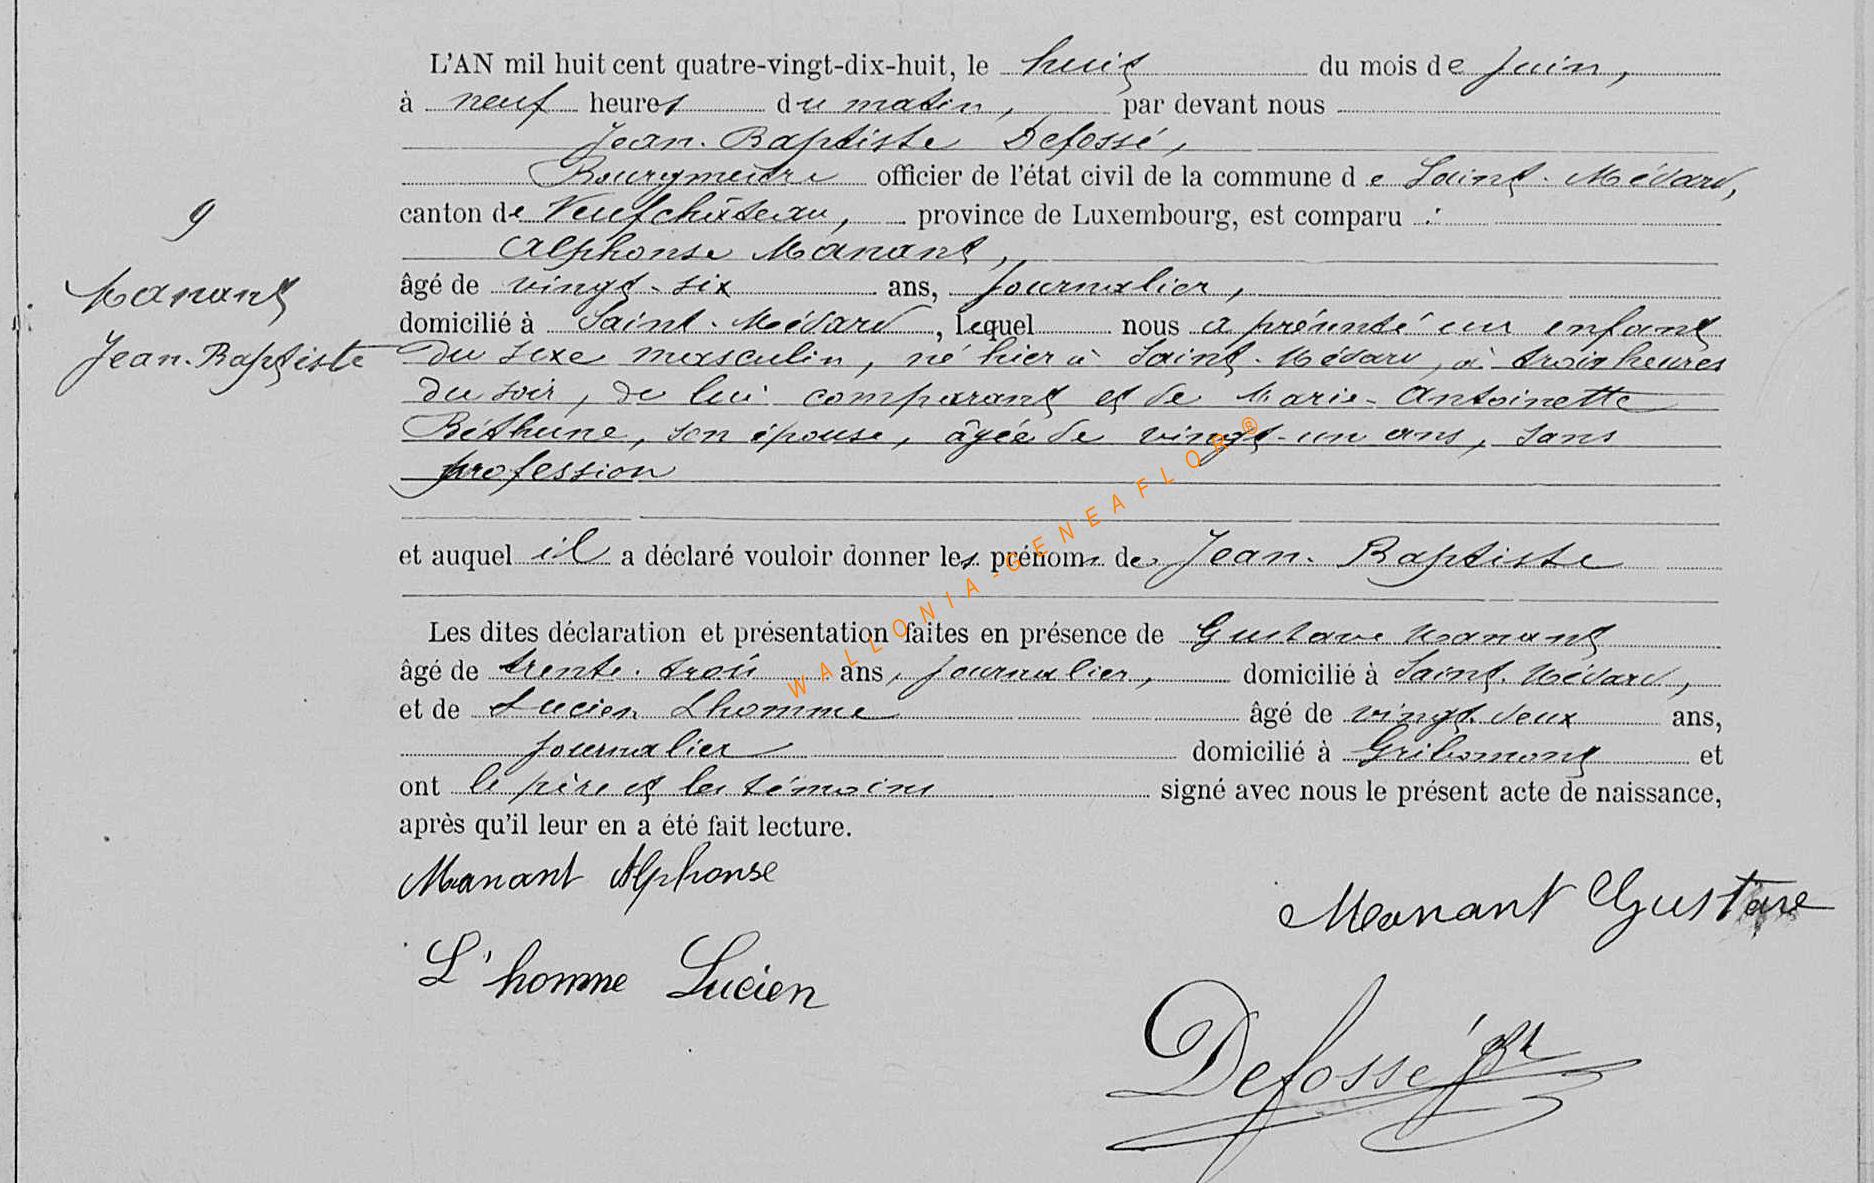 L'AN mil huit cent quatre-vingt-dix-huit, le huit du mois de Juin,
à neuf heures du matin, par devant nous
Jean-Baptiste Defossé,
Bourgmestre officier de l'état civil de la commune de Saint-Médard,
canton de Neufchâteau, province de Luxembourg, est comparu :
9
Alphonse Manant,
Manant
Jean-Baptiste
âgé de vingt-six ans, journalier,
domicilié à Saint-Médard, lequel nous a présenté un enfant
du sexe masculin, né hier à Saint-Médard, à trois heures
du soir, de lui comparant et de Marie-Antoinette
Béthune, son épouse, âgée de vingt-un ans, sans
profession
et auquel il a déclaré vouloir donner les prénoms de Jean-Baptiste
Les dites déclaration et présentation faites en présence de Gustave Manant
âgé de trente-trois ans, journalier, domicilié à Saint-Médard,
et de Lucien Lhomme âgé de vingt-deux ans,
journalier domicilié à Gribomont et
ont le père et les témoins signé avec nous le présent acte de naissance,
après qu'il leur en a été fait lecture.
Manant Alphonse
Manant Gustave
L'homme Lucien
Defossé JBt
WALLONIA-GENEAFLOR®